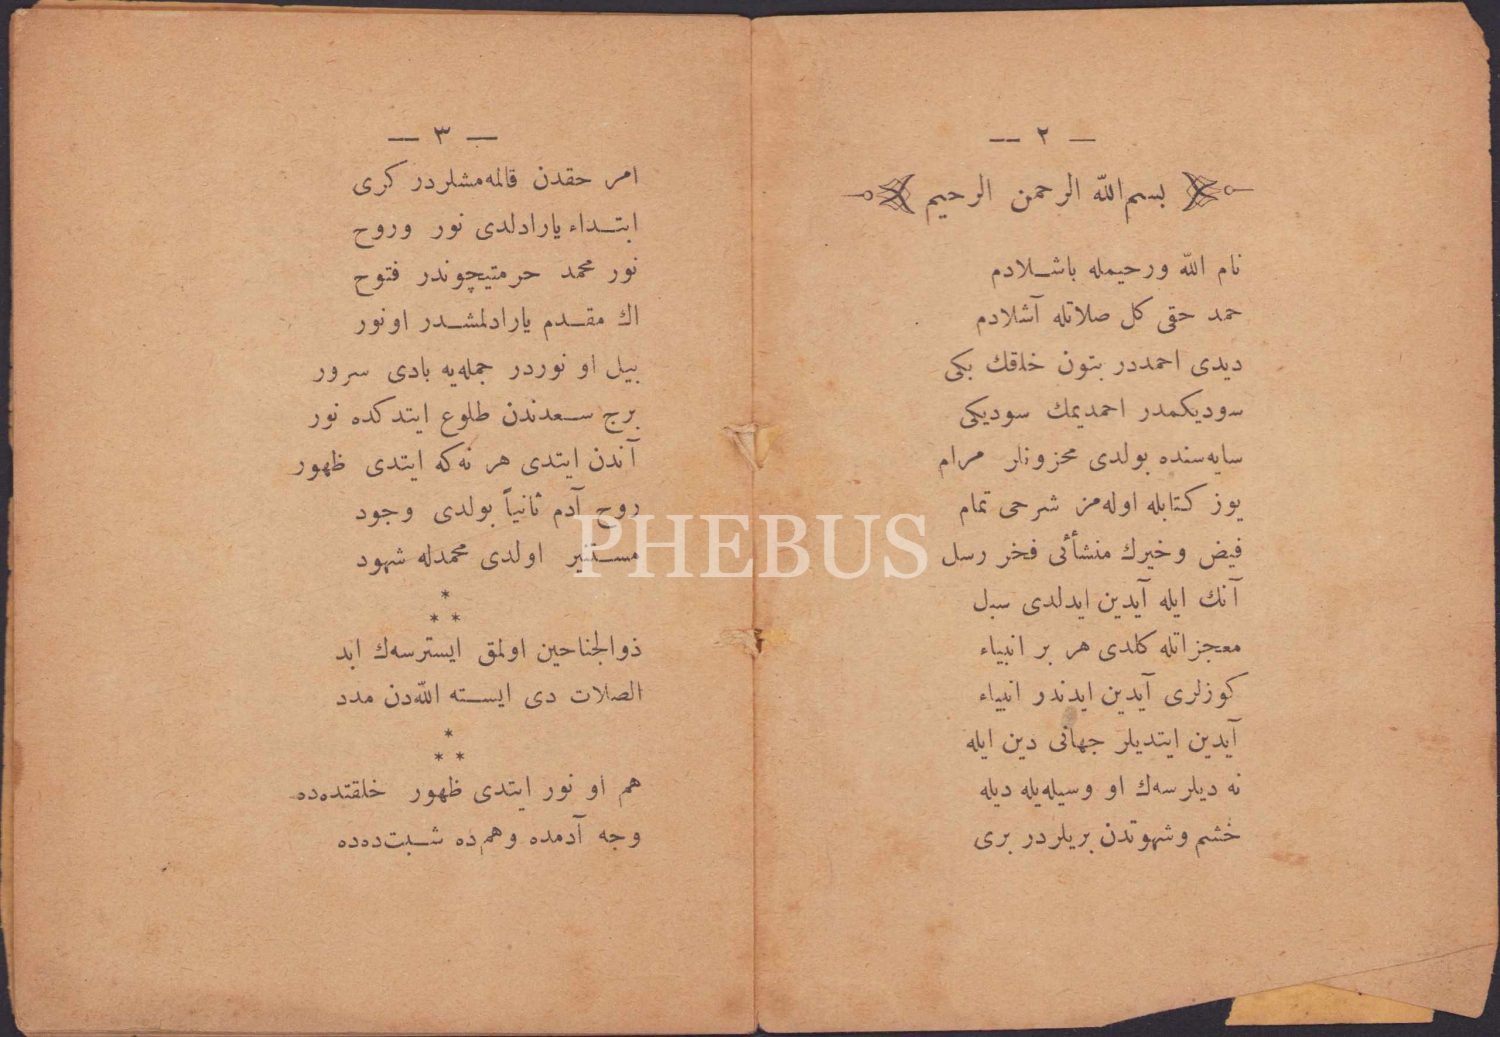 — ٢ —
بسم الله الرحمن الرحيم
نام الله ورحيمله باشلادم
حمد حقى كل صلاتله آشلادم
ديدى احمددر بتون خلقك بكى
سوديكمدر احمديمك سوديكى
سايه‌سنده بولدى محزونلر مرام
يوز كتابله اوله‌مز شرحى تمام
فيض وخيرك منشأئى فخر رسل
آنك ايله آيدين ايدلدى سبل
معجزاتله كلدى هر بر انبياء
كوزلرى آيدين ايدندر انبياء
آيدين ايتديلر جهانى دين ايله
نه ديلرسه‌ك او وسيله‌يله ديله
خشم وشهوتدن بريلردر برى
— ٣ —
امر حقدن قالمه‌مشلردر كرى
ابتداء يارادلدى نور وروح
نور محمد حرمتيچوندر فتوح
اك مقدم يارادلمشدر اونور
بيل او نوردر جمله‌يه بادى سرور
برج سعدندن طلوع ايتدكده نور
آندن ايتدى هر نه‌كه ايتدى ظهور
روح آدم ثانياً بولدى وجود
مستنير اولدى محمدله شهود
*
* *
ذوالجناحين اولمق ايسترسه‌ك ابد
الصلات دى ايسته الله‌دن مدد
*
* *
هم او نور ايتدى ظهور خلقتده‌ده
وجه آدمده وهم‌ده شبت‌ده‌ده
PHEBUS